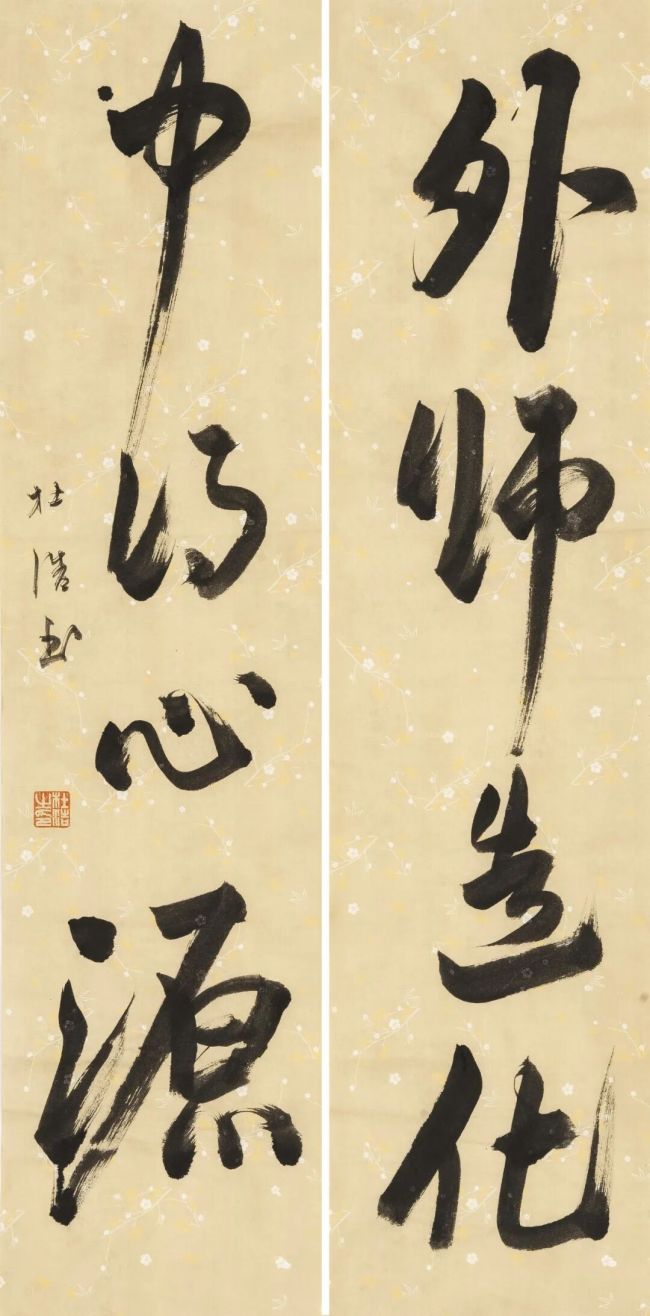 外师造化
中得心源
杜浩书
杜浩之印